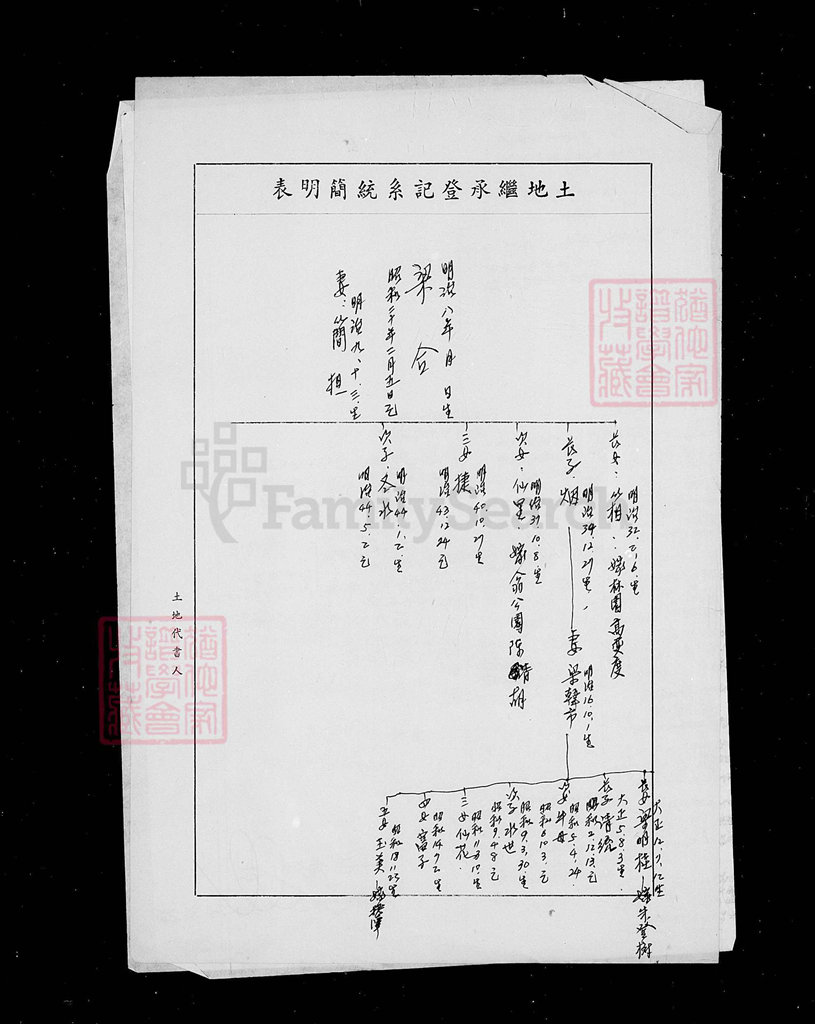 土地繼承登記系統簡明表
明治八年 月 日生
梁合
昭和二十年二月五日亡
明治九、十、三、生
妻：簡担
長女：笛：嫁林園高
明治32.2.6.生
長子：烟
明治34.12.21生
妻 梁韓市
明治16.10.1生
次女：仙里：嫁翁公園陳 胡
明治37.10.8.生
三女 捷
明治40.10.21生
明治43.12.24亡
次子：冬水
明治44.1.2.生
明治44.5.2亡
長女梁明桂—嫁朱登樹
大正12.7.12生
長子清統
大正5.8.3生
昭和2.12.13亡
次女
昭和5.4.24.
昭和6.10.3.亡
次子水世
昭和9.3.30.生
昭和9.4.8亡
三女仙花
昭和11.3.10.生
四女富子
昭和14.9.2生
五女玉美—嫁
昭和18.11.23生
土地代書人
FamilySearch
譜學會
收藏
譜學會
收藏